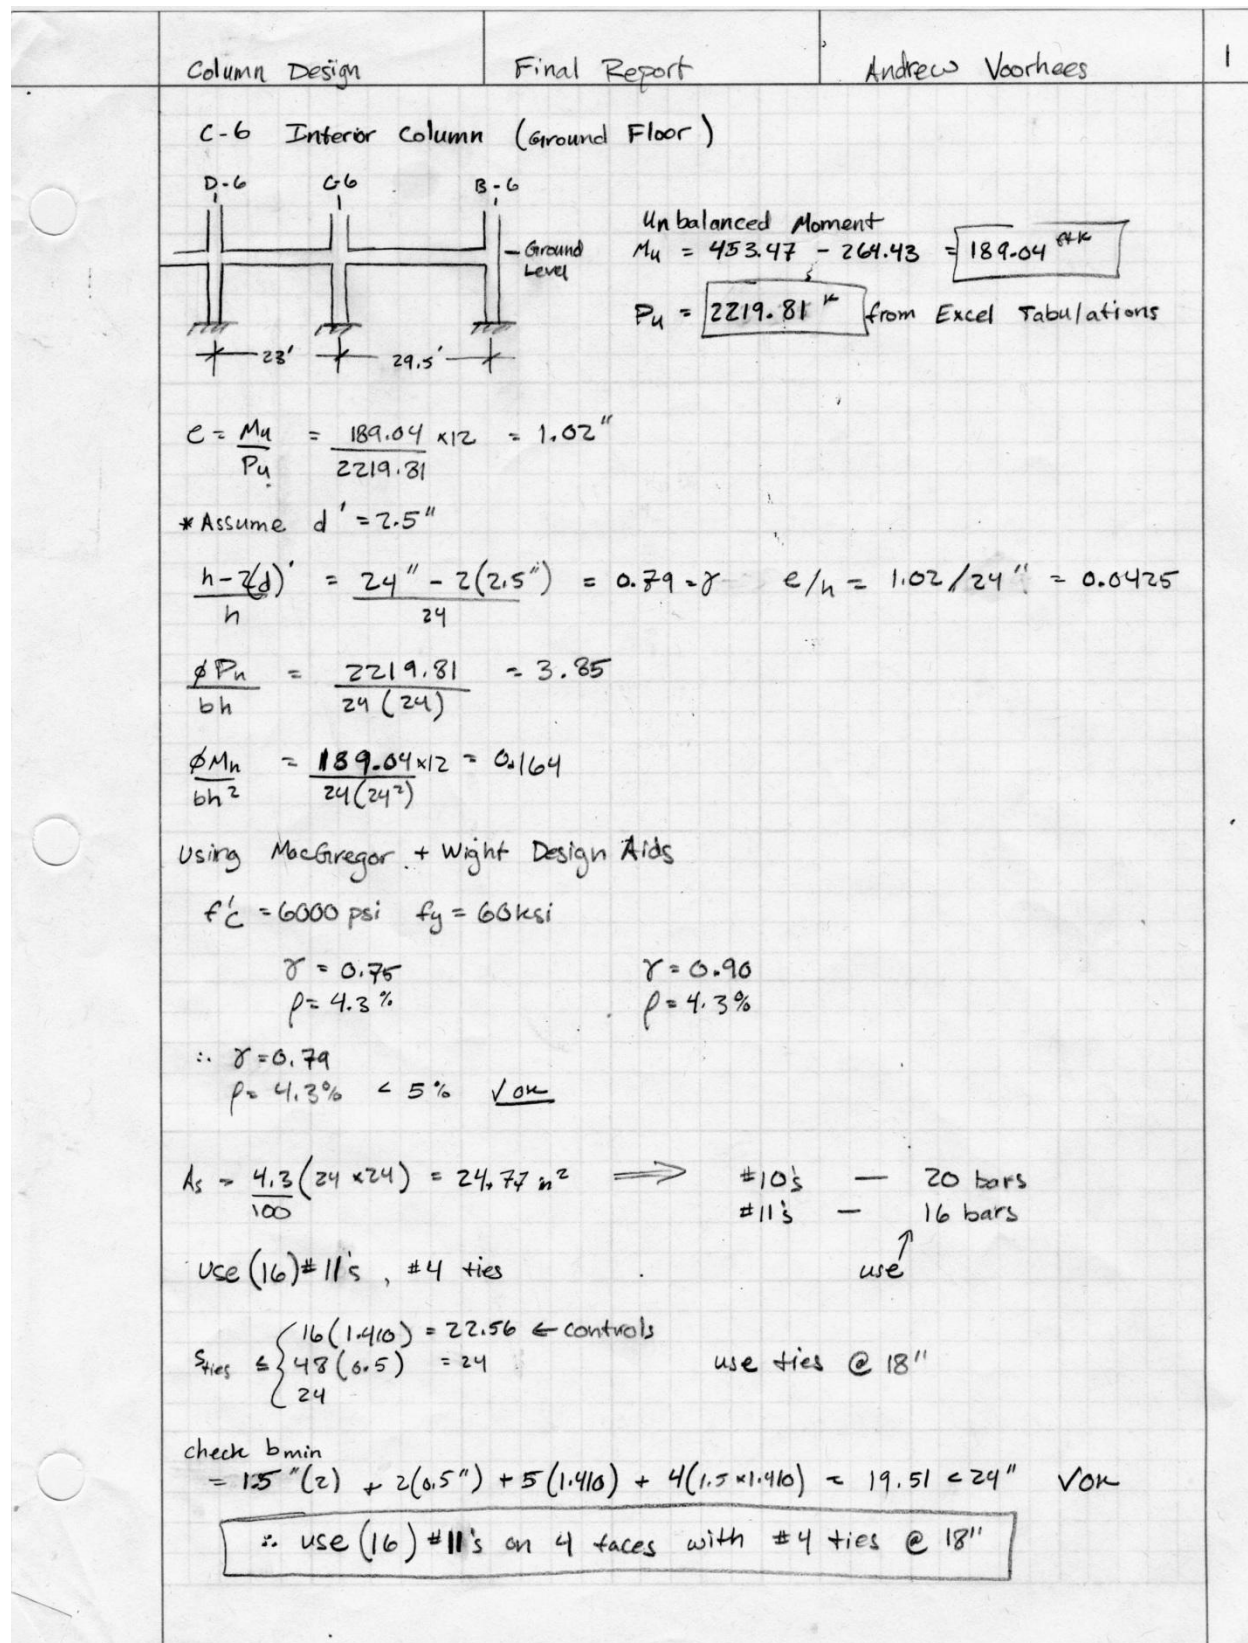 Column Design Final Report Andrew Voorhees 1
C-6 Interior Column (Ground Floor)
D-6 C-6 B-6
Ground
Level
23' 29.5'
Unbalanced Moment
Mu = 453.47 - 264.43 = 189.04 ft k
Pu = 2219.81 k from Excel Tabulations
e = Mu/Pu = 189.04/2219.81 ×12 = 1.02"
* Assume d' = 2.5"
h-2(d)'/h = 24" - 2(2.5")/24 = 0.79 = γ e/h = 1.02/24" = 0.0425
φPn/bh = 2219.81/24(24) = 3.85
φMn/bh² = 189.04×12/24(24²) = 0.164
Using MacGregor + Wight Design Aids
f'c = 6000 psi fy = 60ksi
γ = 0.75 γ = 0.90
ρ = 4.3% ρ = 4.3%
∴ γ = 0.79
ρ = 4.3% < 5% √ OK
As = 4.3/100 (24 × 24) = 24.77 in² ⟹ #10's — 20 bars
#11's — 16 bars
use (16) #11's, #4 ties use
Sties ≤ { 16(1.410) = 22.56 ← controls
48(0.5) = 24 use ties @ 18"
24
check bmin
= 1.5"(2) + 2(0.5") + 5(1.410) + 4(1.5×1.410) = 19.51 < 24" √OK
∴ use (16) #11's on 4 faces with #4 ties @ 18"